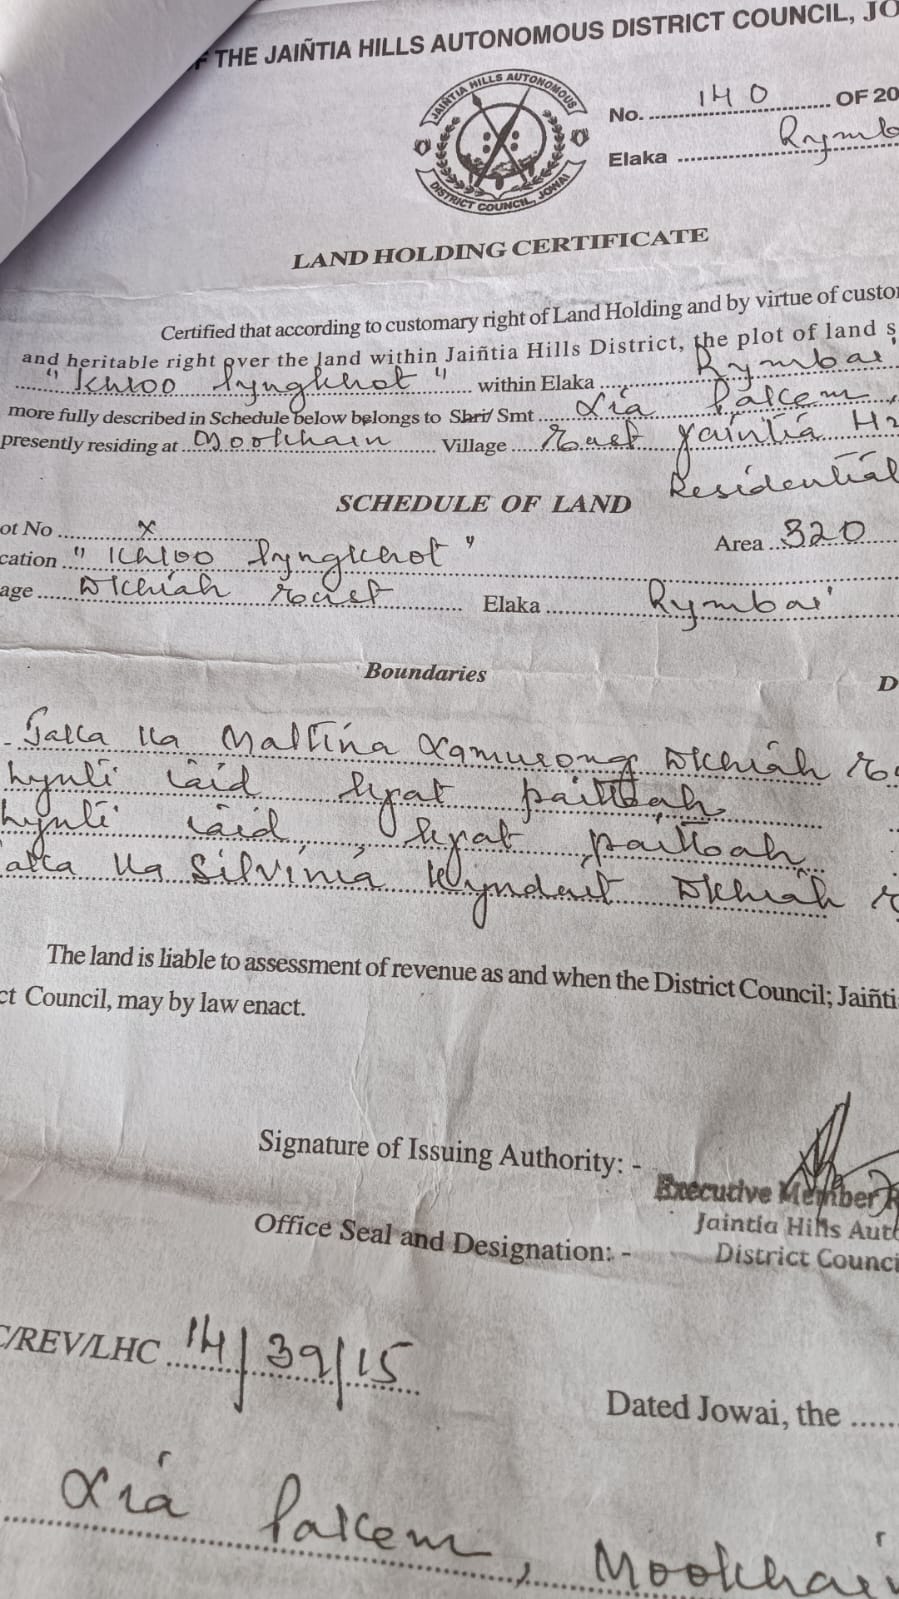 F THE JAIÑTIA HILLS AUTONOMOUS DISTRICT COUNCIL, JO
JAIÑTIA HILLS AUTONOMOUS
DISTRICT COUNCIL, JOWAI
No. 140 OF 20
Elaka Rymb
LAND HOLDING CERTIFICATE
Certified that according to customary right of Land Holding and by virtue of custo
and heritable right over the land within Jaiñtia Hills District, the plot of land s
"Khloo Pyngkhot" within Elaka Rymbai
more fully described in Schedule below belongs to Shri/ Smt Lia Pakem,
presently residing at Mookhain Village East Jaintia H
Residential
SCHEDULE OF LAND
ot No x Area 320
cation "Khloo Pyngkhot"
age Dkhiah East Elaka Rymbai
Boundaries D
Jaka ka Maltina Lamurong Dkhiah
hynti iaid kyat paitbah
hynti iaid, kyat paitbah
aka ka Silvinia Kyndait Dkhiah
The land is liable to assessment of revenue as and when the District Council; Jaiñti
ct Council, may by law enact.
Signature of Issuing Authority: -
Executive Member R
Jaintia Hills Aut
Office Seal and Designation: - District Counci
C/REV/LHC 14/39/15
Dated Jowai, the
Lia Pakem, Mookhai